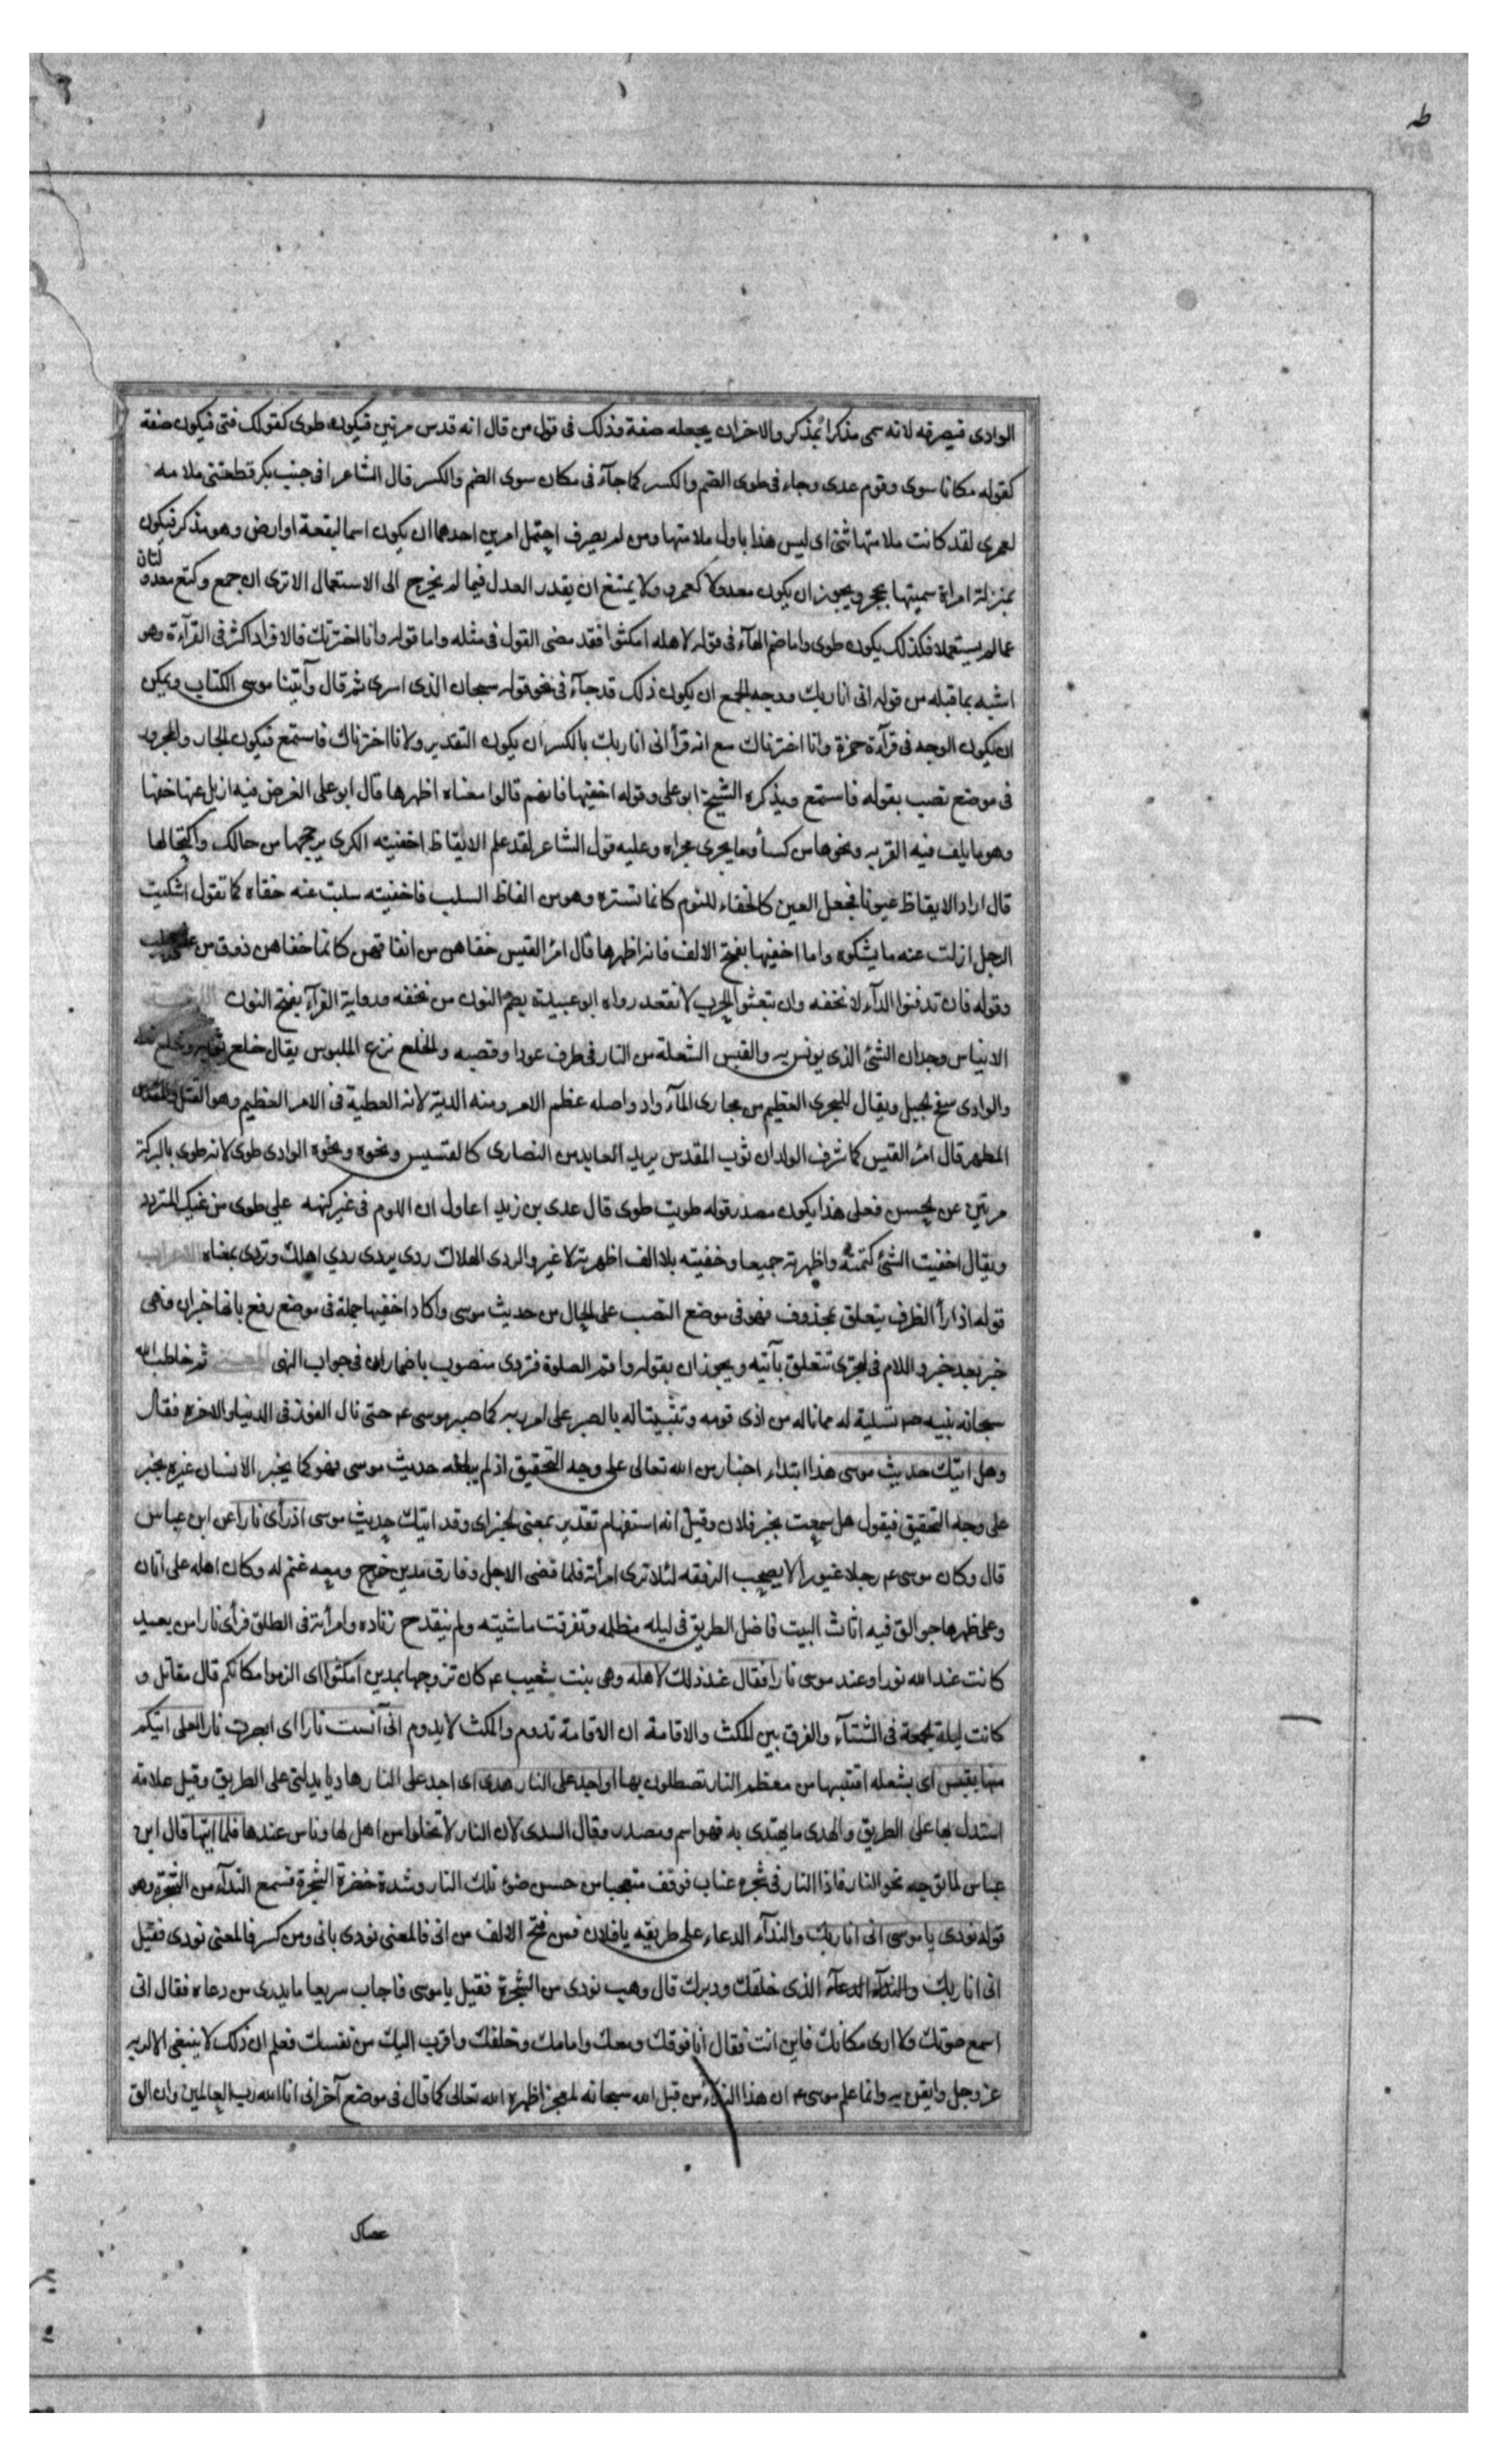 طه
الوادى فيصرفه لانه سمى مذكرا بمذكر والاخران يجعله صفة وذلك فى قول من قال انه قدس مرتين فيكون طوى كقولك فتى فيكون صفة
كقوله مكانا سوى وقوم عدى وجاء فى طوى الضم والكسر كما جآء فى مكان سوى الضم والكسر قال الشاعر افى جنب بكر قطعتنى ملامه
لعمرى لقد كانت ملامتها ثنى اى ليس هذا باول ملامتها ومن لم يصرف احتمل امرين احدهما ان يكون اسما لبقعة او ارض وهو مذكر فيكون
بمنزلة امراة سميتها بحجر ويجوز ان يكون معدولا كعمر ولا يمتنع ان يقدر العدل فيما لم يخرج الى الاستعمال الا ترى ان جمع وكتع معدولتان
عما لم يستعملا فكذلك يكون طوى واما ضم الهآء فى قوله لاهله امكثوا فقد مضى القول فى مثله واما قوله وانا اخترتك فالافراد اكثر فى القرآءة وهو
اشبه بما قبله من قوله انى انا ربك ووجه الجمع ان يكون ذلك قد جآء فى نحو قوله سبحان الذى اسرى ثم قال وآتينا موسى الكتاب ويمكن
ان يكون الوجه فى قرآءة حمزة وانا اخترناك مع انه قرأ انى انا ربك بالكسر ان يكون التقدير ولانا اخترناك فاستمع فيكون الجار والمجرور
فى موضع نصب بقوله فاستمع ويذكره الشيخ ابو على وقوله اخفيها فانهم قالوا معناه اظهرها قال ابو على الغرض فيه ازيل عنها خفها
وهو ما يلف فيه القربه ونحوها من كسأ وما يجرى مجراه وعليه قول الشاعر لقد علم الايقاظ اخفيته الكرى يرججها من حالك واكتحالها
قال اراد الايقاظ عيونا فجعل العين كالخفاء للنوم كانما تستره وهو من الفاظ السلب فاخفيته سلبت عنه خفاه كما تقول اشكيت
الرجل ازلت عنه ما يشكوه واما اخفيها بفتح الالف فانه اظهرها قال امرؤ القيس خفاهن من انفاقهن كانما خفاهن ذوق من
وقوله فان تدفنوا الدآء لا نخفه وان تبعثوا الحرب لا نقعد رواه ابو عبيدة بضم النون من نخفه ورواية القرآء بفتح النون
الايناس وجدان الشئ الذى يونس به والقبس الشعلة من النار فى طرف عود او قصبه والخلع نزع الملبوس يقال خلع
والوادى سفح الجبل ويقال للمجرى العظيم من مجارى المآء واد واصله عظم الامر ومنه الدية لانه العطية فى الامر العظيم وهو القتل والمقدس
المطهر قال امرؤ القيس كما شرف الولدان ثوب المقدس يريد العابد من النصارى كالقسيس ونحوه ونحوه الوادى طوى لانه طوى بالبركة
مرتين عن الحسن فعلى هذا يكون مصدر قوله طويت طوى قال عدى بن زيد اعاول ان اللوم فى غير كنهه على طوى من غيك المتردد
ويقال اخفيت الشئ كتمته واظهرته جميعا وخفيته بلا الف اظهرته لا غير والردى الهلاك ردى يردى ردي اهلك وتردى بمعناه الاعراب
قوله اذ رأ الظرف يتعلق بمحذوف فهو فى موضع النصب على الحال من حديث موسى واكاد اخفيها جملة فى موضع رفع بانها خبر ان وهى
خبر بعد خبر واللام فى لتجزى تتعلق بآتيه ويجوز ان بقوله واقم الصلوة فتردى منصوب باضمار ان فى جواب النهى ثم خاطب الله
سبحانه نبيه صم تسلية له مما ناله من اذى قومه وتثبيتا له بالصبر على امر ربه كما صبر موسى عم حتى نال الفوز فى الدنيا والاخره فقال
وهل اتيك حديث موسى هذا ابتداء اخبار من الله تعالى على وجه التحقيق اذ لم يبلغه حديث موسى فهو كما يخبر الانسان غيره بخبر
على وجه التحقيق فيقول هل سمعت بخبر فلان وقيل انه استفهام تقدير بمعنى الخبر اى وقد اتيك حديث موسى اذ رأى نارا عن ابن عباس
قال وكان موسى عم رجلا غيورا لا يصحب الرفقه لئلا ترى امرأته فلما قضى الاجل وفارق مدين خرج ومعه غنم له وكان اهله على اتان
وعلى ظهرها جوالق فيه اثاث البيت فاضل الطريق فى ليله مظلمه وتفرقت ماشيته ولم ينقدح زناده وامرأته فى الطلق فرأى نارا من بعيد
كانت عند الله نورا وعند موسى نارا فقال عند ذلك لاهله وهى بنت شعيب عم كان تزوجها بمدين امكثوا اى الزموا مكانكم قال مقاتل و
كانت ليلة الجمعة فى الشتآء والفرق بين المكث والاقامة ان الاقامة تدوم والمكث لا يدوم انى آنست نارا اى ابصرت نارا لعلى اتيكم
منها بقبس اى بشعله اقتبسها من معظم النار تصطلون بها او اجد على النار هدى اى اجد على النار هاديا يدلنى على الطريق وقيل علامة
استدل بها على الطريق والهدى ما يهتدى به فهو اسم ومصدر وقال السدى لان النار لا تخلوا من اهل لها وناس عندها فلما اتيها قال ابن
عباس لما توجه نحو النار فاذا النار فى شجره عناب فوقف متعجبا من حسن ضوء تلك النار وشدة خضرة الشجرة فسمع الندآء من الشجرة وهو
قوله نودى يا موسى انى انا ربك والندآء الدعاء على طريقه يا فلان فمن فتح الالف من انى فالمعنى نودى بانى ومن كسر فالمعنى نودى فقيل
انى انا ربك والندآء الدعآء الذى خلقك ودبرك قال وهب نودى من الشجرة فقيل يا موسى فاجاب سريعا ما يدرى من دعاه فقال انى
اسمع صوتك ولا ارى مكانك فاين انت فقال انا فوقك ومعك وامامك وخلفك واقرب اليك من نفسك فعلم ان ذلك لا ينبغى الا لربه
عز وجل وايقن به وانما علم موسى عم ان هذا الندآء من قبل الله سبحانه لمعجز اظهره الله تعالى كما قال فى موضع آخر انى انا الله رب العالمين وان الق
عصاك